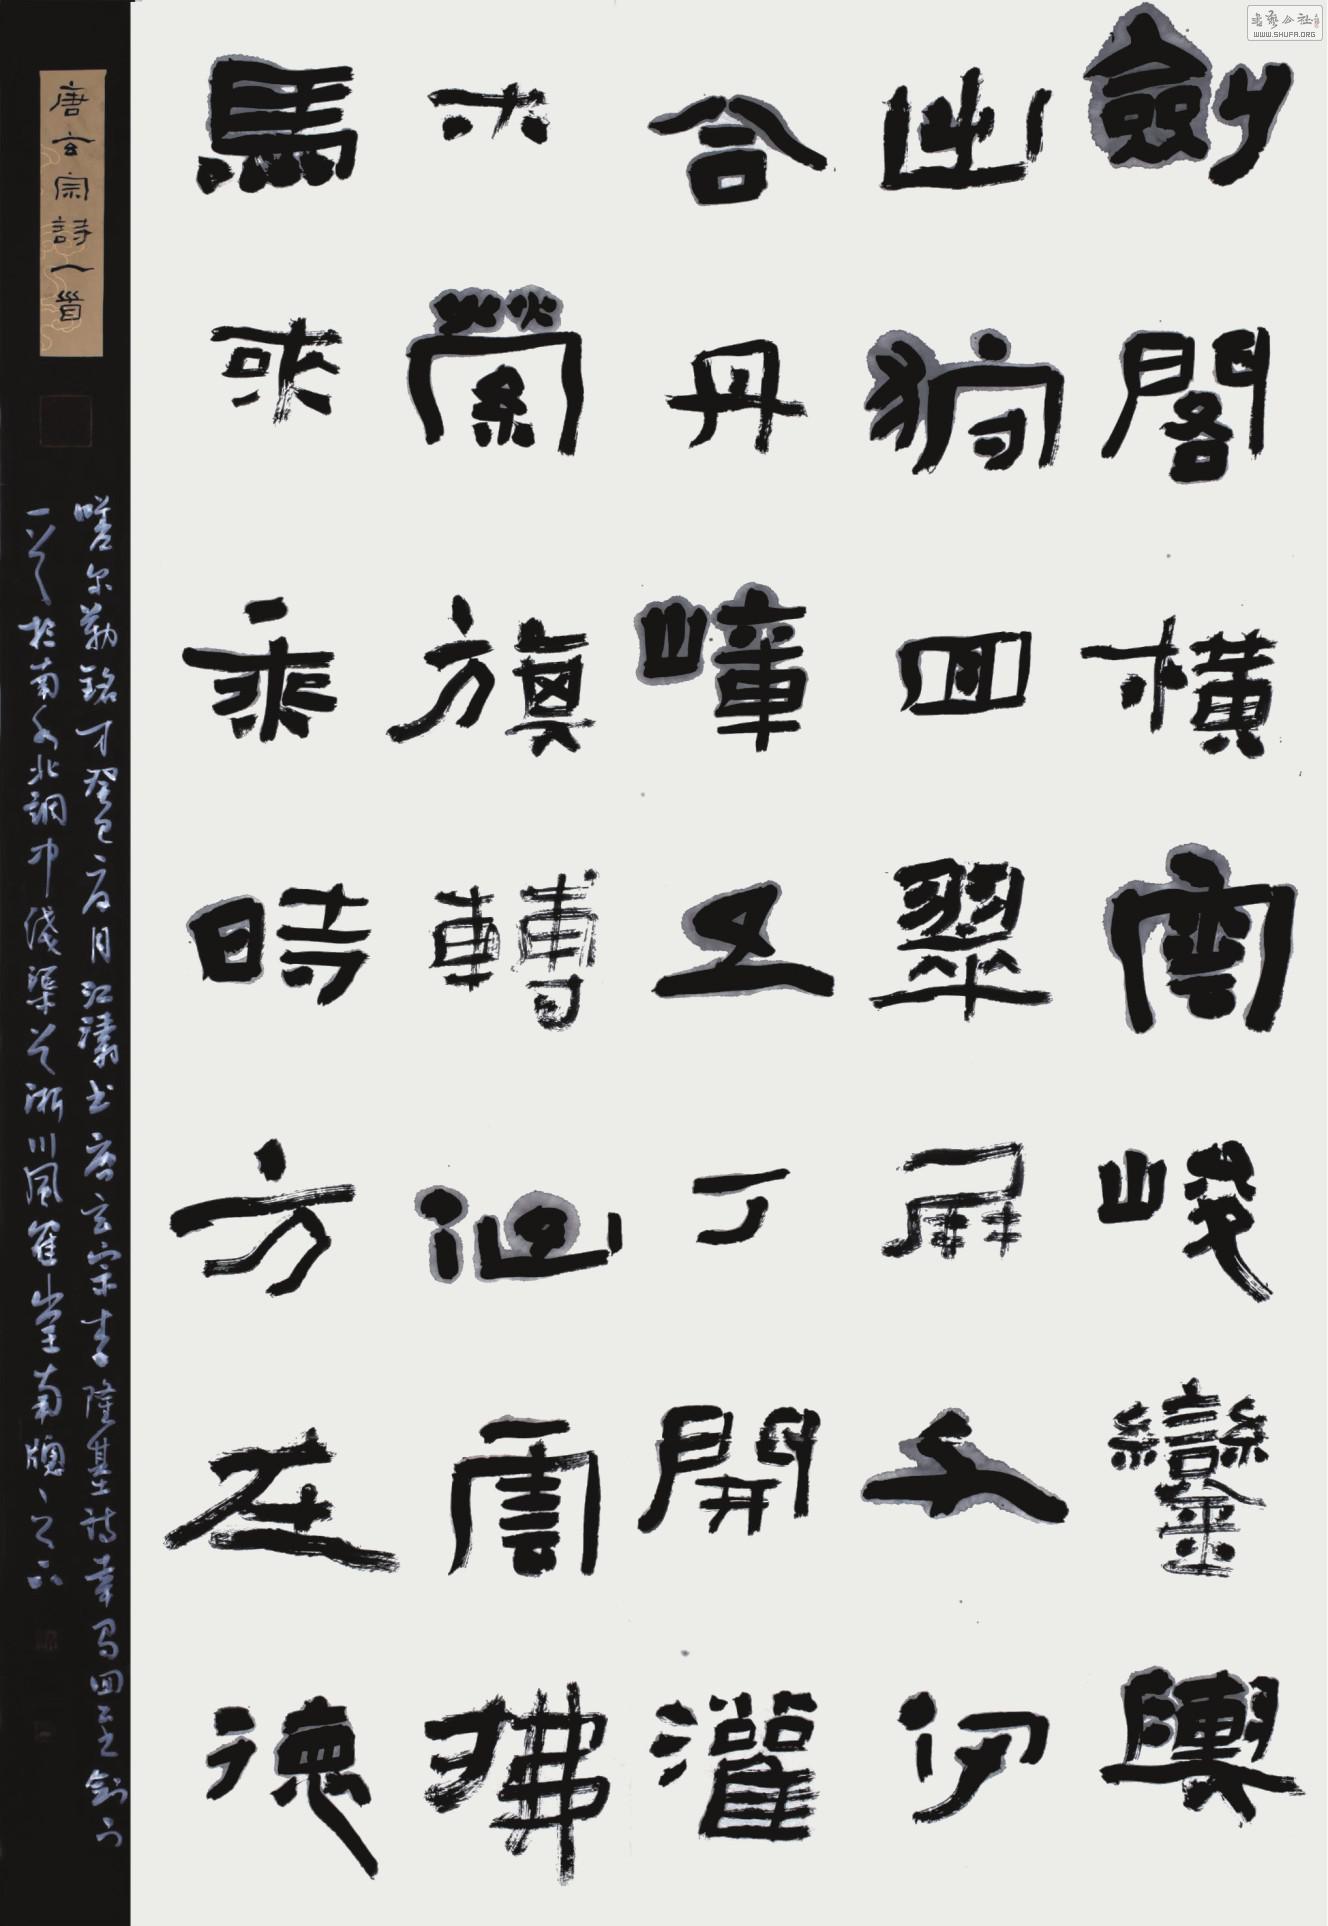 劍閣橫雲峻鑾輿
出狩回翠屏千仞
合丹嶂五丁開灌
木縈旗轉仙雲拂
馬來乘時方在德
唐玄宗詩一首
嗟尔勒銘才癸巳夏月江濤书唐玄宗李隆基詩幸蜀回至劍门
一首於南水北調中綫渠首淅川風堂南牕之下
書藝公社
WWW.SHUFA.ORG